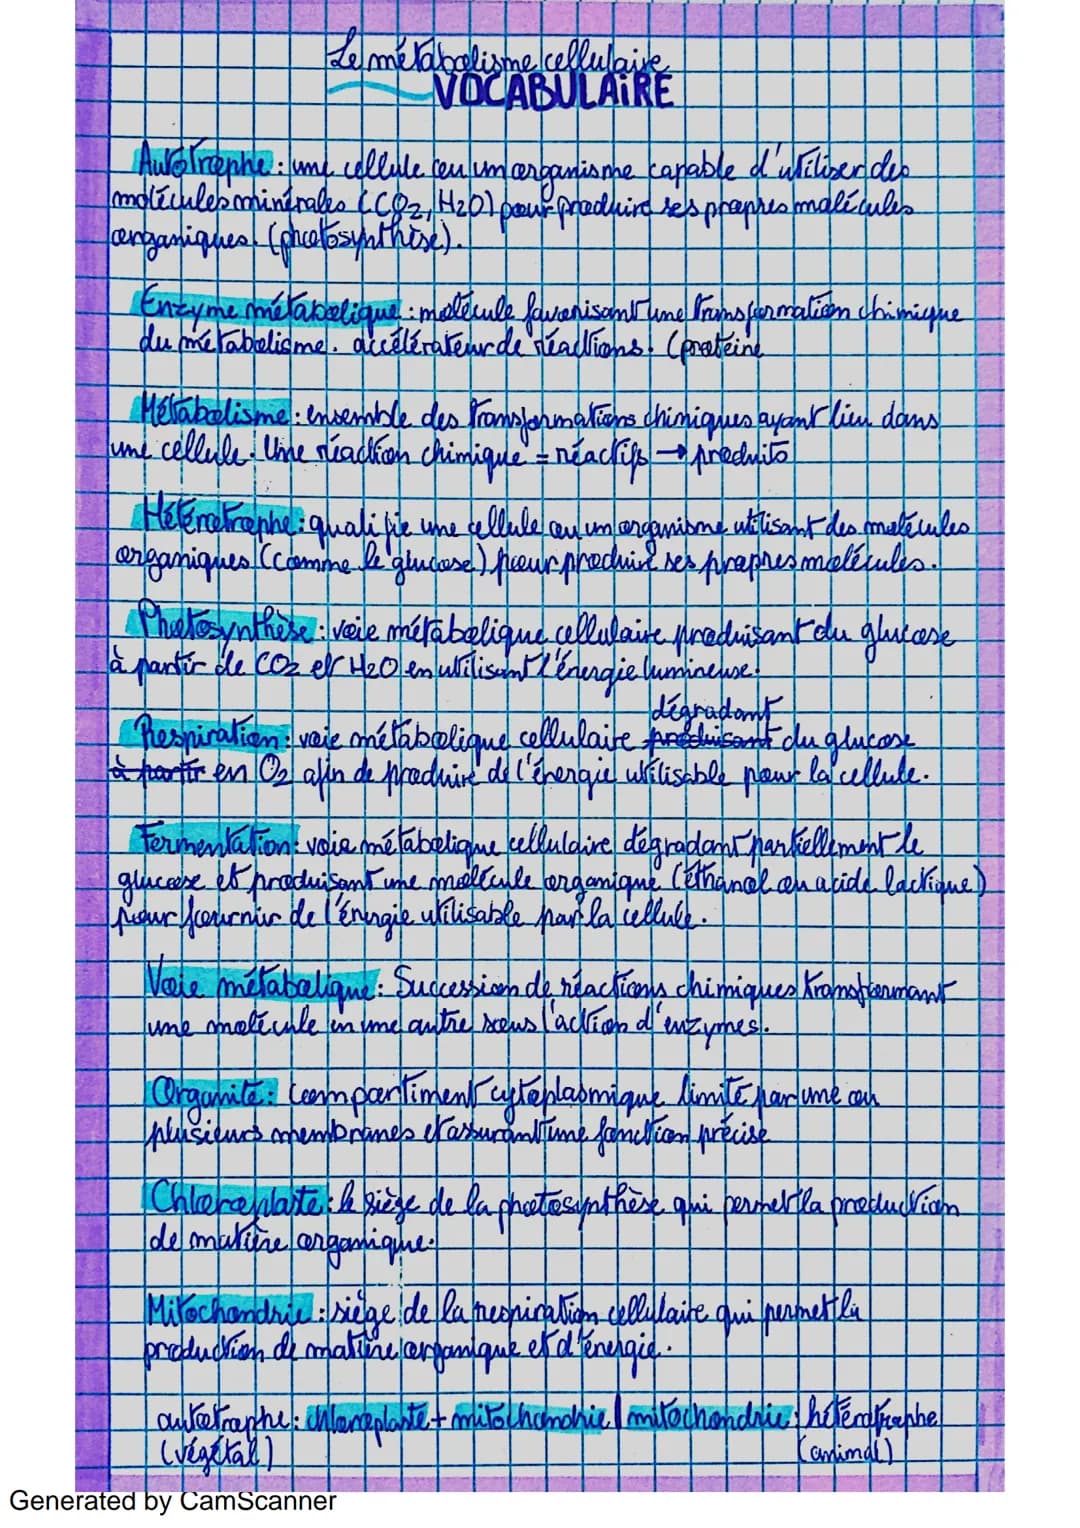 Le métabolisme cellulaire
VOCABULAiRE
Autotrophe : une cellule ou un organisme capable d'utiliser des
molécules minérales (CO2, H2O) pour produire ses propres molécules
organiques. (photosynthèse).
Enzyme métabolique : molécule favorisant une transformation chimique
du métabolisme. accélérateur de réactions. (protéine
Métabolisme : ensemble des transformations chimiques ayant lieu dans
une cellule. Une réaction chimique = réactifs → produits
Hétérotrophe : qualifie une cellule ou un organisme utilisant des molécules
organiques (comme le glucose) pour produire ses propres molécules.
Photosynthèse : voie métabolique cellulaire produisant du glucose
à partir de CO2 et H2O en utilisant l'énergie lumineuse.
dégradant
Respiration : voie métabolique cellulaire produisant du glucose
à partir en O2 afin de produire de l'énergie utilisable pour la cellule.
Fermentation : voie métabolique cellulaire dégradant partiellement le
glucose et produisant une molécule organique (éthanol ou acide lactique)
pour fournir de l'énergie utilisable par la cellule.
Voie métabolique : Succession de réactions chimiques transformant
une molécule en une autre sous l'action d'enzymes.
Organite : Compartiment cytoplasmique limité par une ou
plusieurs membranes et assurant une fonction précise
Chloroplaste : le siège de la photosynthèse qui permet la production
de matière organique.
Mitochondrie : siège de la respiration cellulaire qui permet la
production de matière organique et d'énergie.
autotrophe : chloroplaste + mitochondrie | mitochondrie : hétérotrophe
(végétal) (animal)
Generated by CamScanner